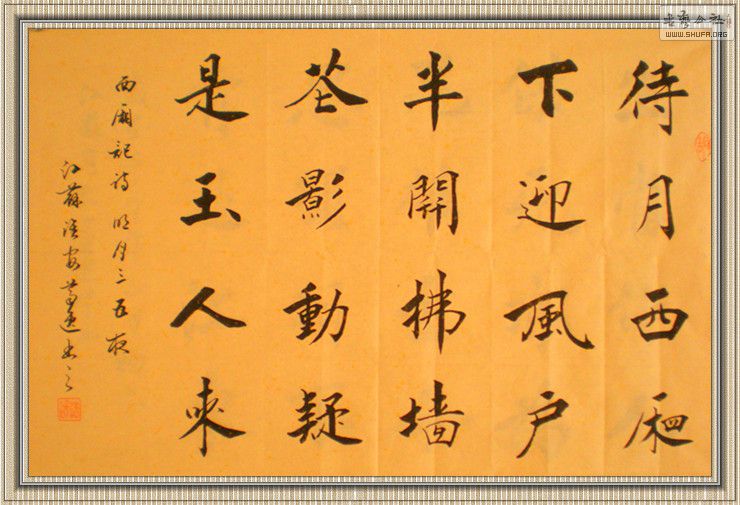 待月西厢
下迎風户
半開拂墙
花影動疑
是玉人來
西廂記詩 明月三五夜
江蘇淮安董
书之
书艺公社
WWW.SHUFA.ORG